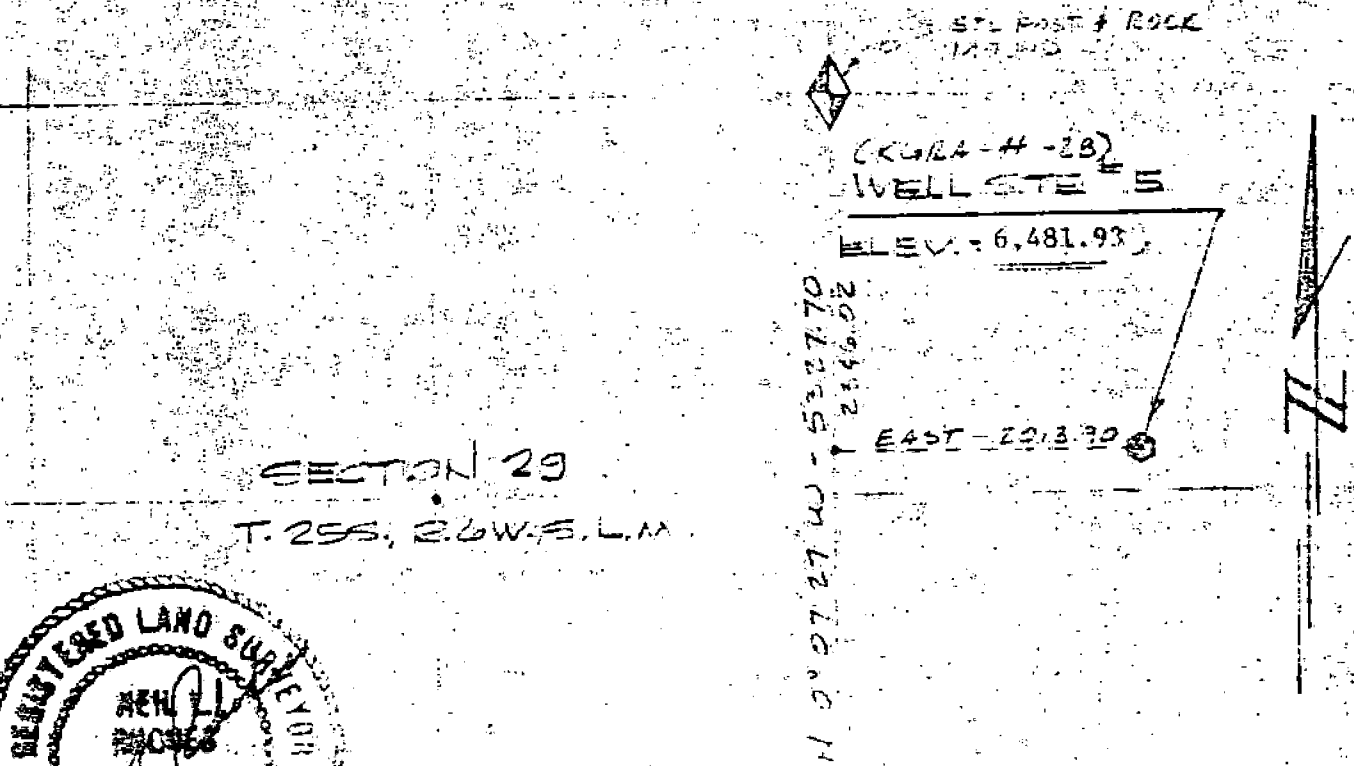 STL POST & ROCK
(KGRA-#-28)
WELL SITE # 5
ELEV. = 6,481.93
N 0°07'27" W - 5327.70
2346.02
EAST - 2013.90
SECTION 29
T. 25S., R.6W. S.L.M.
REGISTERED LAND SURVEYOR
N